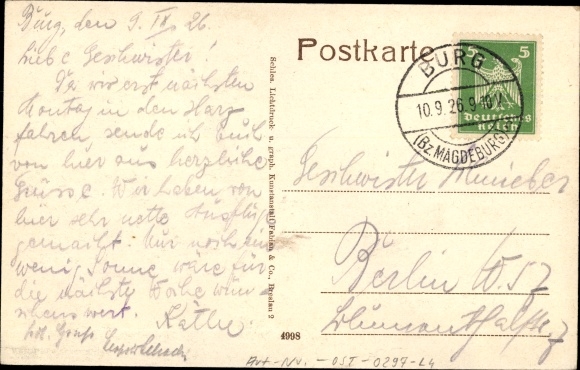 Burg, den 9. IX. 26.
Liebe Geschwister!
Da wir erst nächsten
Montag in den Harz
fahren sende ich Euch
von hier aus herzliche
Grüsse. Wir haben von
hier sehr nette Ausflüge
gemacht. Nur noch ein
wenig Sonne wäre für
die nächste Woche wün-
schenswert. Käthe.
Gruß
Schles. Lichtdruck u. graph. Kunstanstalt Fabian & Co., Breslau 2
4998
Postkarte
5 5
Deutsches
Reich
BURG
10.9.26.9-10V.
(Bz. MAGDEBURG)
Geschwister
Berlin W 57
Art-Nr.-OST-0297-L4